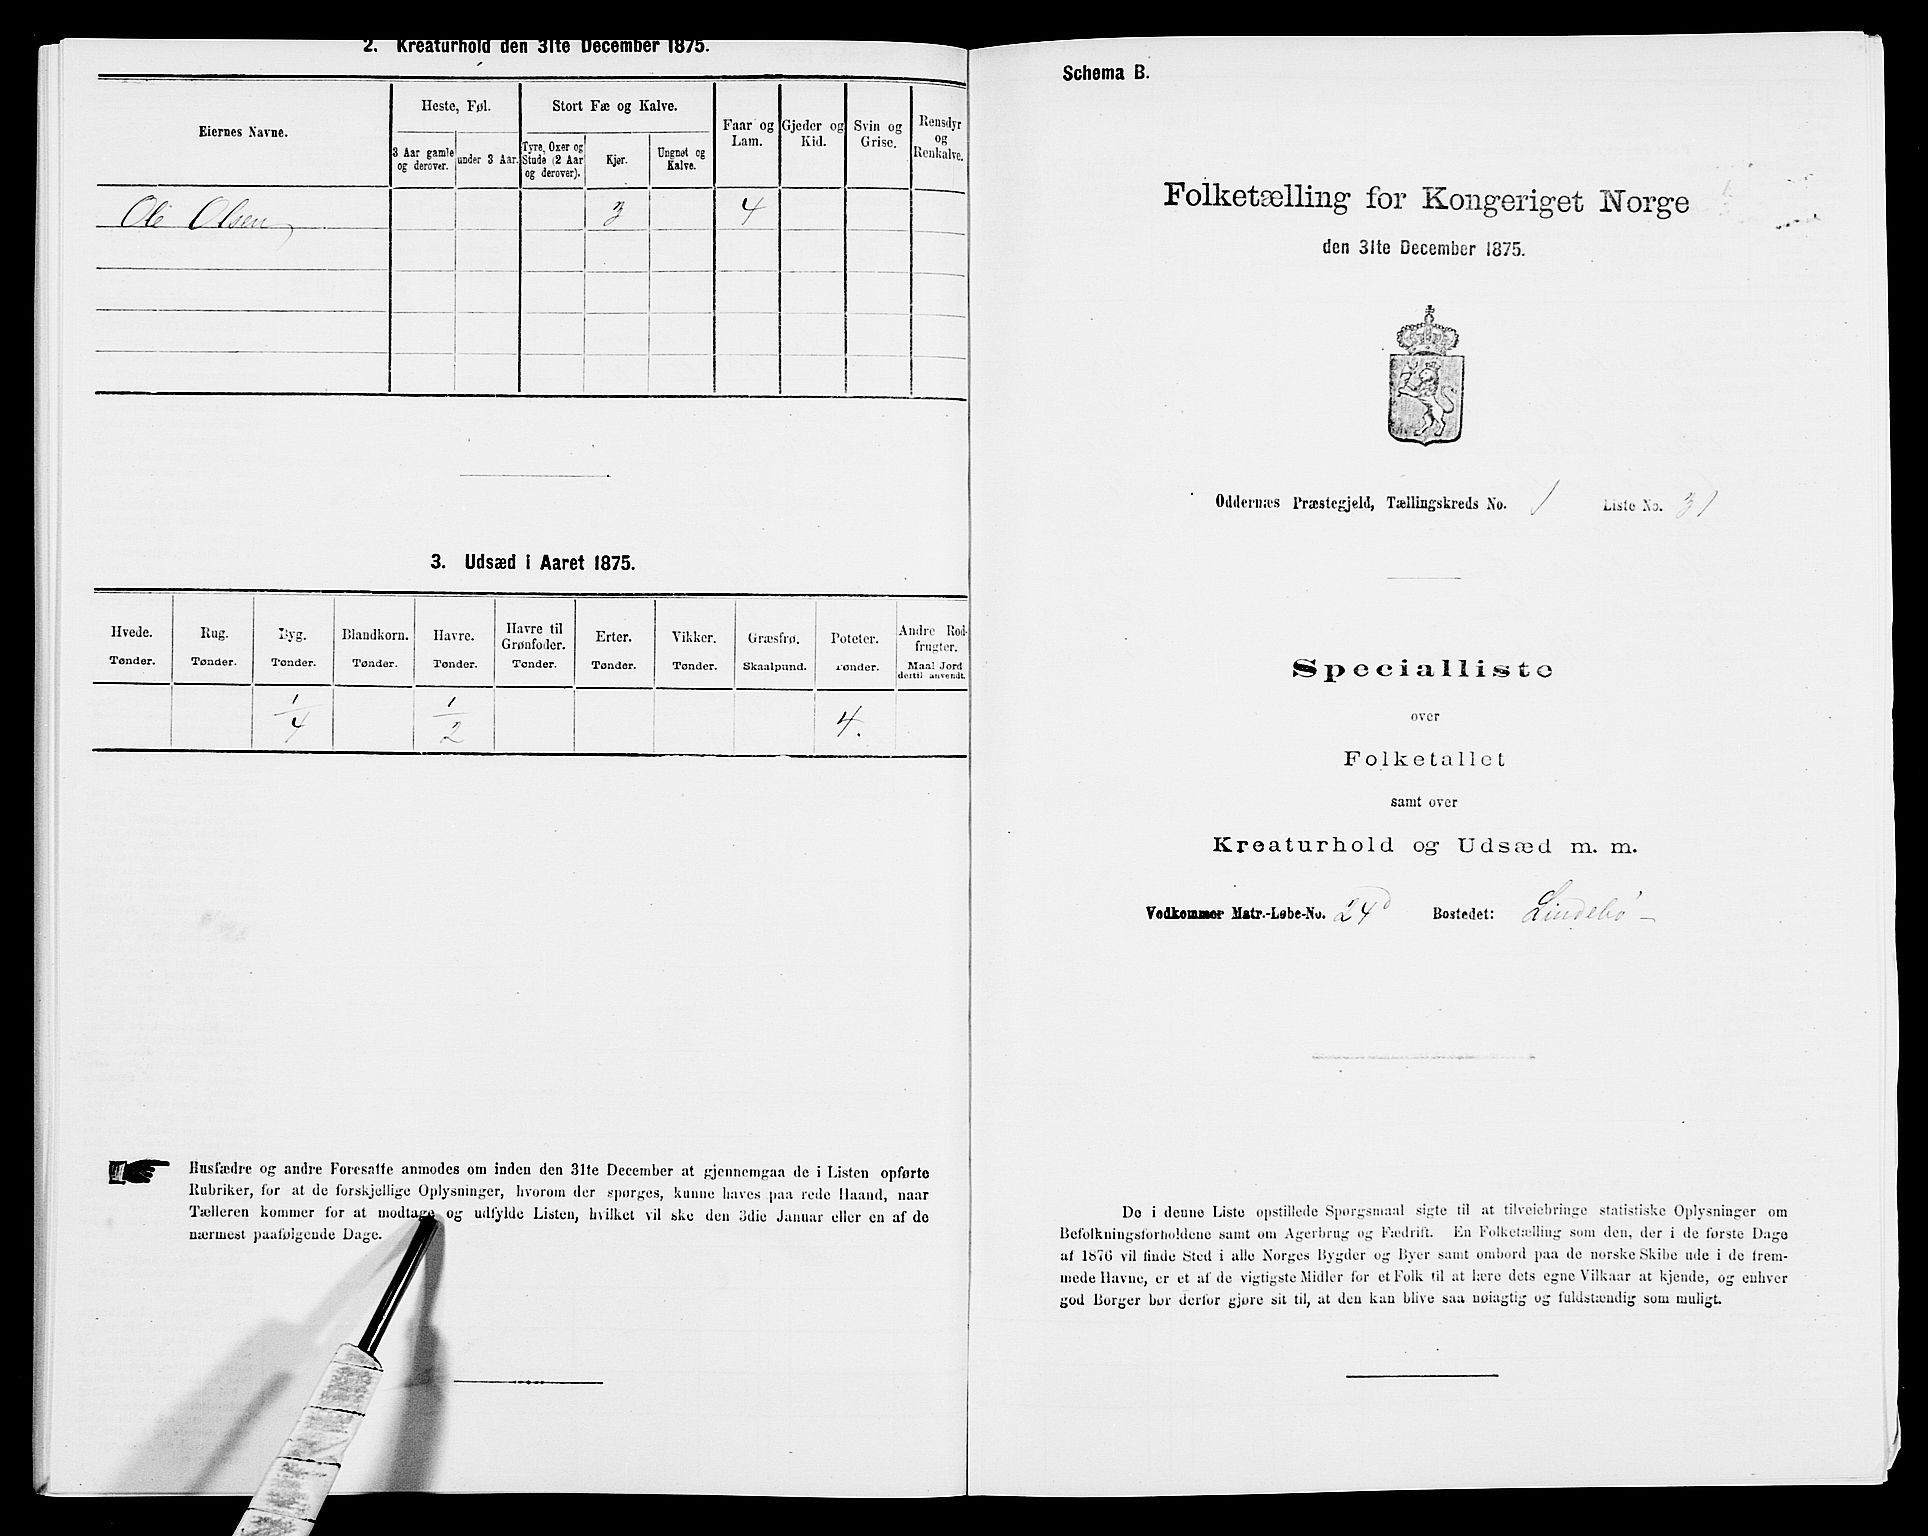 2. Kreaturhold den 31te December 1875.
Eiernes Navne.
Heste, Føl.
3 Aar gamle og derover.
under 3 Aar.
Stort Fæ og Kalve.
Tyre, Oxer og Stude (2 Aar og derover).
Kjør.
Ungnøt og Kalve.
Faar og Lam.
Gjeder og Kid.
Svin og Grise.
Rensdyr og Renkalve.
Ole Olsen 3 4
3. Udsæd i Aaret 1875.
Hvede. Rug. Byg. Blandkorn. Havre. Havre til Grønfoder. Erter. Vikker. Græsfrø. Poteter. Andre Rodfrugter.
Tønder. Tønder. Tønder. Tønder. Tønder. Tønder. Tønder. Tønder. Skaalpund. Tønder. Maal Jord dertil anvendt.
1/4 1/2 4.
Husfædre og andre Foresatte anmodes om inden den 31te December at gjennemgaa de i Listen opførte
Rubriker, for at de forskjellige Oplysninger, hvorom der spørges, kunne haves paa rede Haand, naar
Tælleren kommer for at modtage og udfylde Listen, hvilket vil ske den 3die Januar eller en af de
nærmest paafølgende Dage.
Schema B.
Folketælling for Kongeriget Norge
den 31te December 1875.
Oddernæs Præstegjeld, Tællingskreds No. 1 Liste No. 31
Specialliste
over
Folketallet
samt over
Kreaturhold og Udsæd m. m.
Vedkommer Matr.-Løbe-No. 24d Bostedet: Lindebø
De i denne Liste opstillede Spørgsmaal sigte til at tilveiebringe statistiske Oplysninger om
Befolkningsforholdene samt om Agerbrug og Fædrift. En Folketælling som den, der i de første Dage
af 1876 vil finde Sted i alle Norges Bygder og Byer samt ombord paa de norske Skibe ude i de frem-
mede Havne, er et af de vigtigste Midler for et Folk til at lære dets egne Vilkaar at kjende, og enhver
god Borger bør derfor gjøre sit til, at den kan blive saa nøiagtig og fuldstændig som muligt.